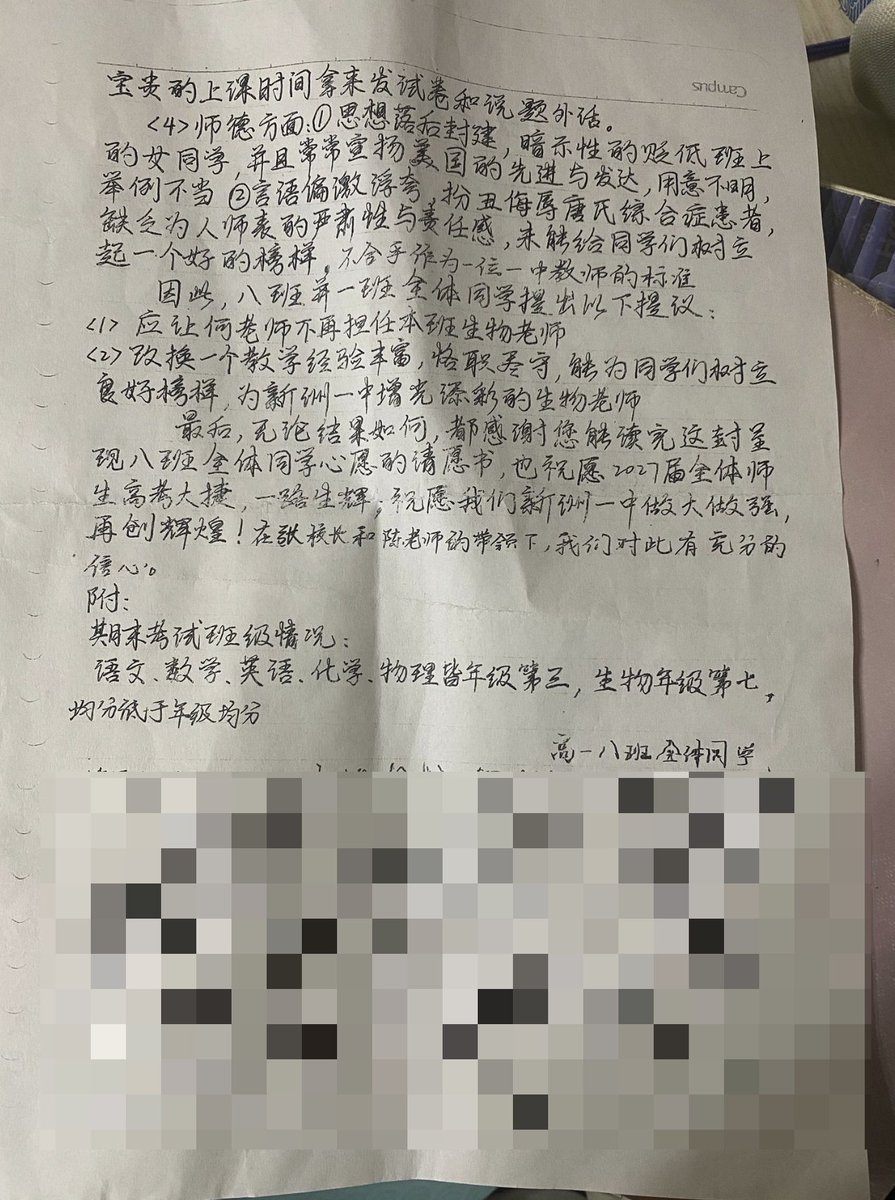 Campus
宝贵的上课时间拿来发试卷和说题外话。
<4>师德方面:①思想落后封建,暗示性的贬低班上
的女同学,并且常常宣扬美国的先进与发达,用意不明,
举例不当 ②言语偏激浮夸,扮丑侮辱唐氏综合症患者,
缺乏为人师表的严肃性与责任感,未能给同学们树立
起一个好的榜样。不合乎作为一位一中教师的标准
因此,八班并一班全体同学提出以下提议:
<1> 应让何老师不再担任本班生物老师
<2> 改换一个教学经验丰富,恪职尽守,能为同学们树立
良好榜样,为新洲一中增光添彩的生物老师
最后,无论结果如何,都感谢您能读完这封呈
现八班全体同学心愿的请愿书,也祝愿2027届全体师
生高考大捷,一路生辉;祝愿我们新洲一中做大做强,
再创辉煌!在张校长和陈老师的带领下,我们对此有充分的
信心。
附:
期末考试班级情况:
语文、数学、英语、化学、物理皆年级第三,生物年级第七,
均分低于年级均分
高一八班全体同学